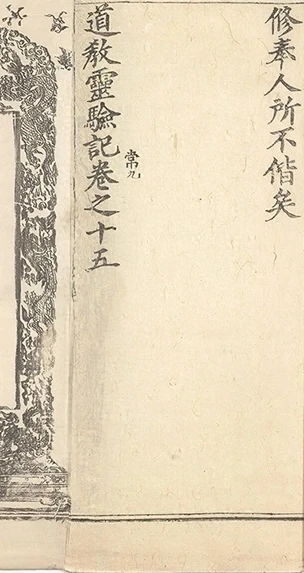 修奉人所不偕矣
道教靈驗記卷之十五
常九